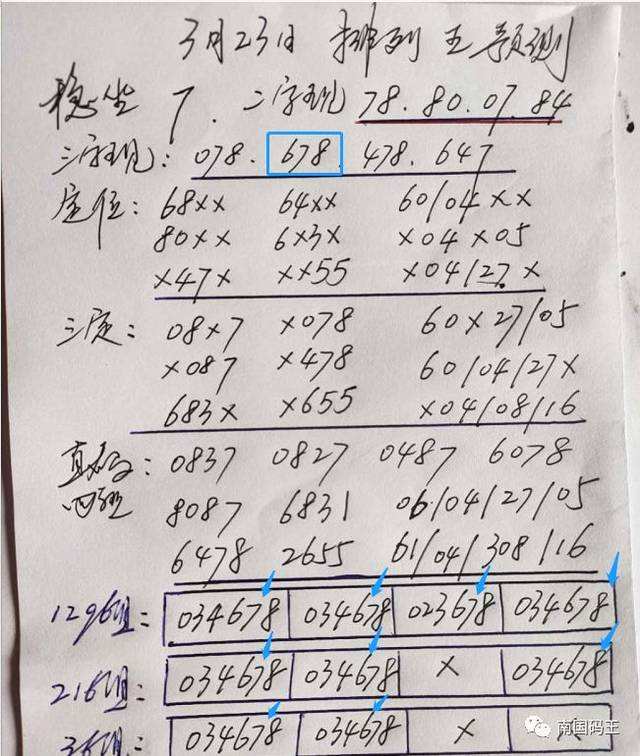 3月23日 排列五预测
稳坐 7. 二字现 78.80.07.84
三字现: 078. 678. 478. 647
定位: 68xx 64xx 60/04xx
80xx 6x3x x04x05
x47x xx55 x04/27x
三定: 08x7 x078 60x27/05
x087 x478 60/04/27x
683x x655 x04/08/16
直码: 0837 0827 0487 6078
四组 8087 6831 06/04/27/05
6478 2655 61/04/308/16
1296组: 034678 034678 023678 034678
216组: 034678 034678 x 034678
36组: 034678 034678 x
南国码王